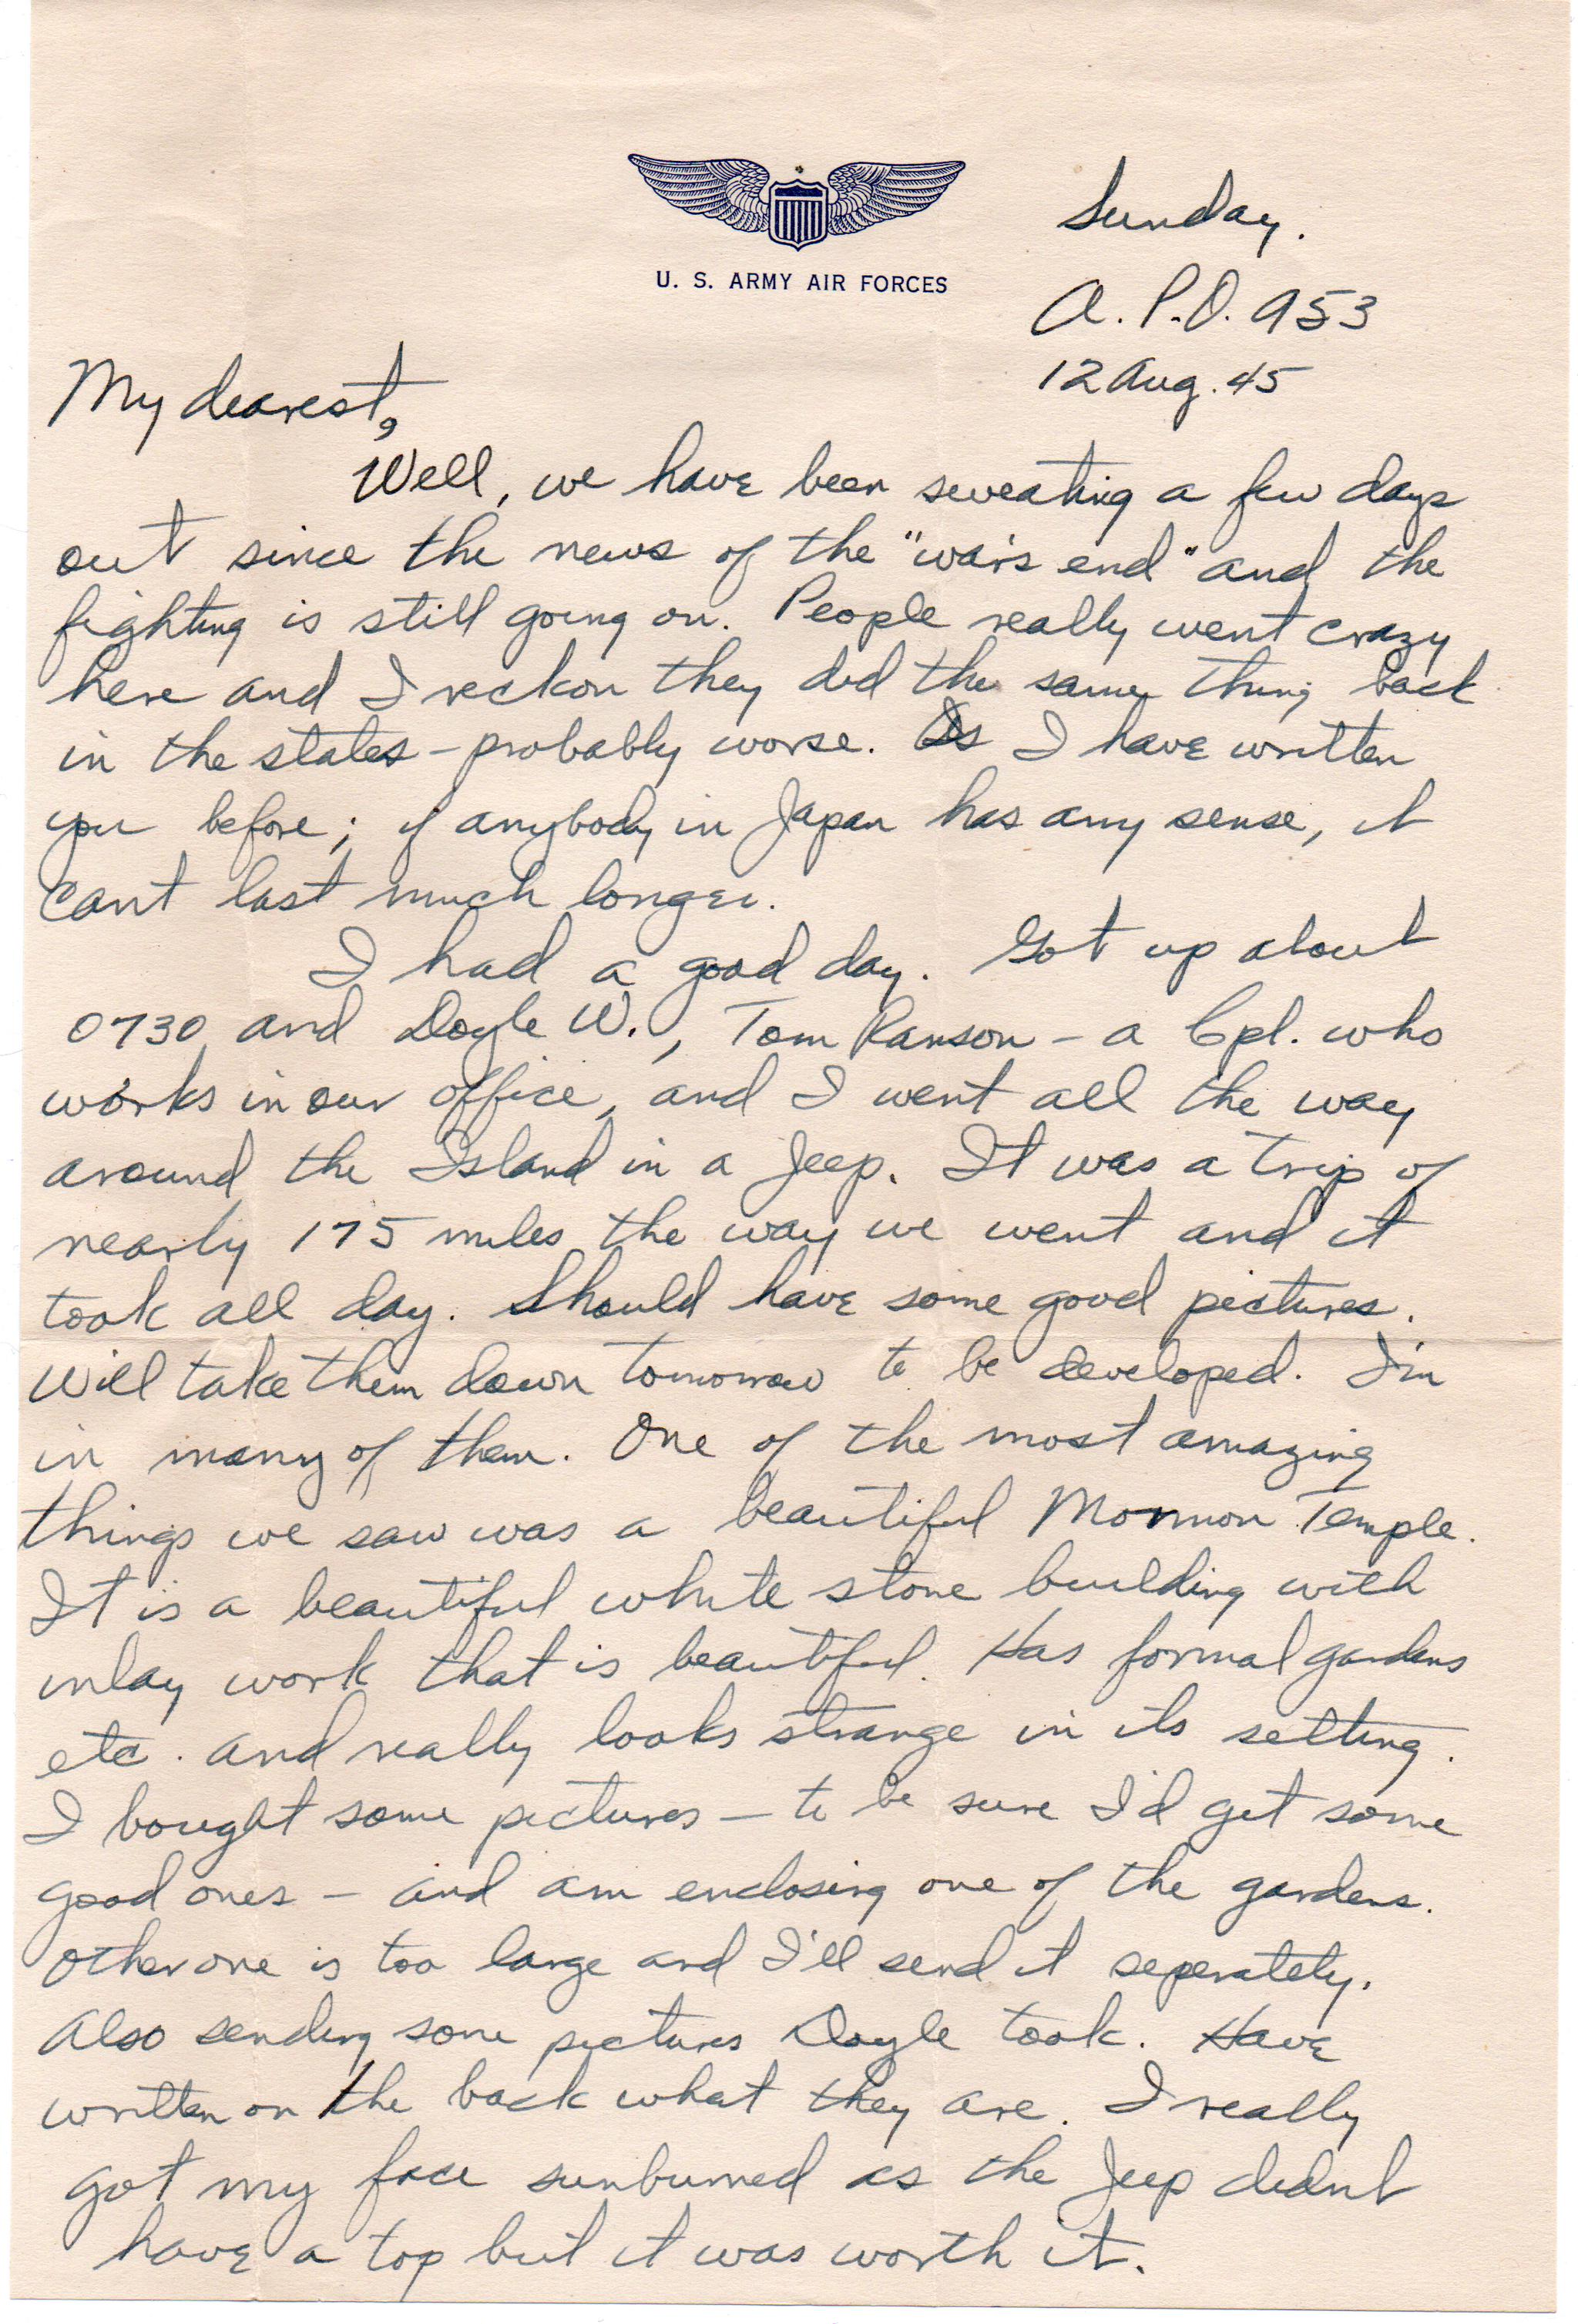 U. S. ARMY AIR FORCES
Sunday.
A.P.O. 953
12 Aug. 45
My dearest,
Well, we have been sweating a few days
out since the news of the "war's end" and the
fighting is still going on. People really went crazy
here and I reckon they did the same thing back
in the states - probably worse. As I have written
you before; if anybody in Japan has any sense, it
cant last much longer.
I had a good day. Got up about
0730 and Doyle W., Tom Ranson - a Cpl. who
works in our office, and I went all the way
around the Island in a Jeep. It was a trip of
nearly 175 miles the way we went and it
took all day. Should have some good pictures.
Will take them down tomorrow to be developed. I'm
in many of them. One of the most amazing
things we saw was a beautiful Mormon Temple.
It is a beautiful white stone building with
inlay work that is beautiful. Has formal gardens
etc. and really looks strange in its setting.
I bought some pictures - to be sure I'd get some
good ones - and am enclosing one of the gardens.
Other one is too large and I'll send it seperately.
Also sending some pictures Doyle took. Have
written on the back what they are. I really
got my face sunburned as the Jeep didnt
have a top but it was worth it.